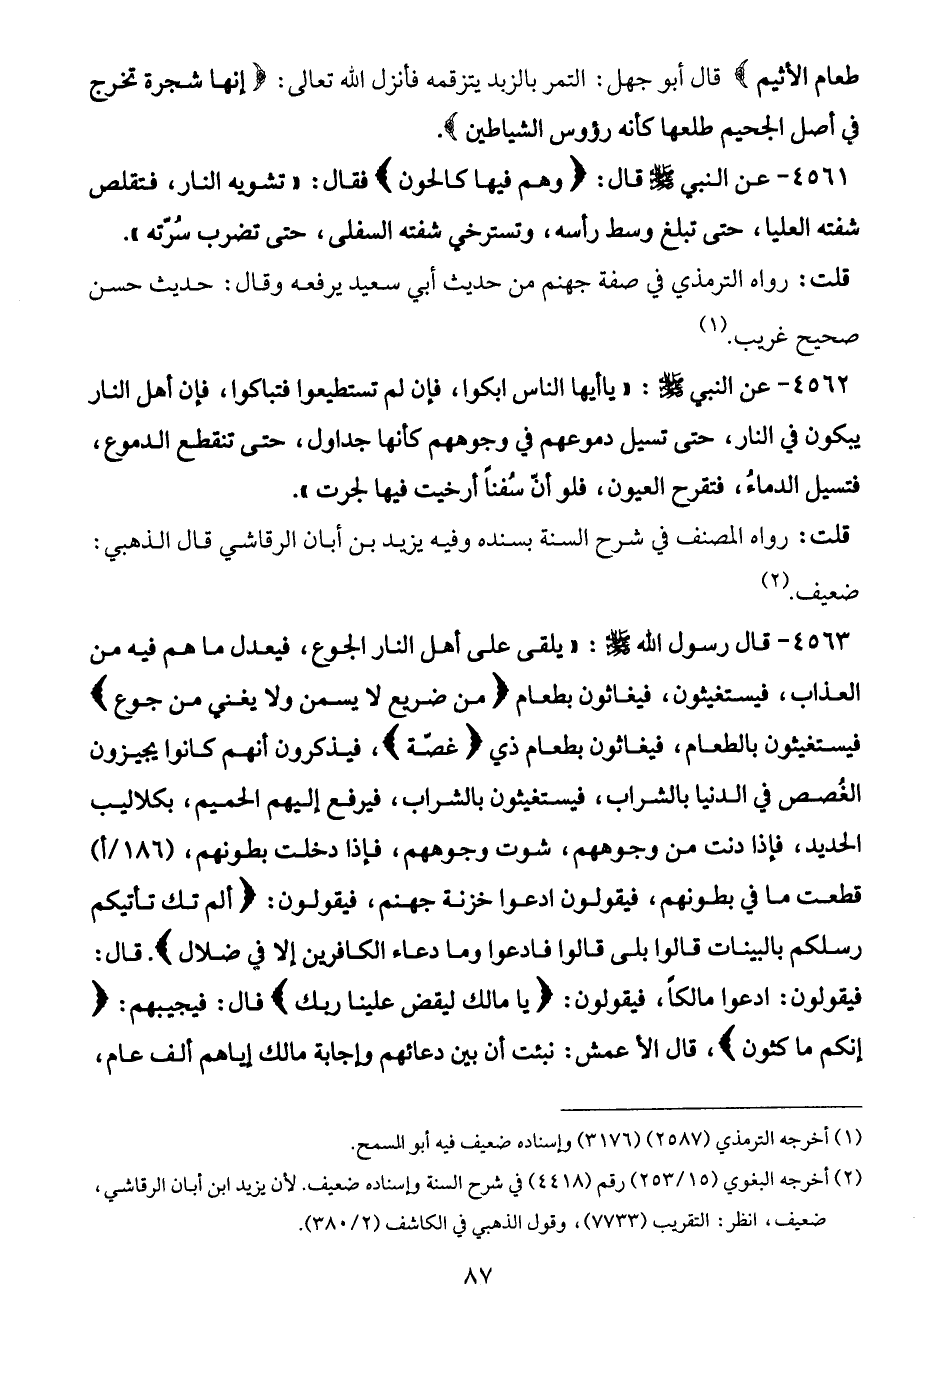 طعام الأثيم ﴾ قال أبو جهل: التمر بالزبد يتزقمه فأنزل الله تعالى: ﴿ إنها شجرة تخرج
في أصل الجحيم طلعها كأنه رؤوس الشياطين ﴾.
٤٥٦١- عن النبي ﷺ قال: ﴿ وهم فيها كالحون ﴾ فقال: « تشويه النار، فتقلص
شفته العليا، حتى تبلغ وسط رأسه، وتسترخي شفته السفلى، حتى تضرب سُرّته ».
قلت: رواه الترمذي في صفة جهنم من حديث أبي سعيد يرفعه وقال: حديث حسن
صحيح غريب.(١)
٤٥٦٢- عن النبي ﷺ : « ياأيها الناس ابكوا، فإن لم تستطيعوا فتباكوا، فإن أهل النار
يبكون في النار، حتى تسيل دموعهم في وجوههم كأنها جداول، حتى تنقطع الدموع،
فتسيل الدماءُ، فتقرح العيون، فلو أنّ سُفناً أرخيت فيها لجرت ».
قلت: رواه المصنف في شرح السنة بسنده وفيه يزيد بن أبان الرقاشي قال الذهبي:
ضعيف.(٢)
٤٥٦٣- قال رسول الله ﷺ : « يلقى على أهل النار الجوع، فيعدل ما هم فيه من
العذاب، فيستغيثون، فيغاثون بطعام ﴿ من ضريع لا يسمن ولا يغني من جوع ﴾
فيستغيثون بالطعام، فيغاثون بطعام ذي ﴿ غصّة ﴾، فيذكرون أنهم كانوا يجيزون
الغُصص في الدنيا بالشراب، فيستغيثون بالشراب، فيرفع إليهم الحميم، بكلاليب
الحديد، فإذا دنت من وجوههم، شوت وجوههم، فإذا دخلت بطونهم، (١٨٦/أ)
قطعت ما في بطونهم، فيقولون ادعوا خزنة جهنم، فيقولون: ﴿ ألم تك تأتيكم
رسلكم بالبينات قالوا بلى قالوا فادعوا وما دعاء الكافرين إلا في ضلال ﴾. قال:
فيقولون: ادعوا مالكاً، فيقولون: ﴿ يا مالك ليقض علينا ربك ﴾ قال: فيجيبهم: ﴿
إنكم ما كثون ﴾، قال الأعمش: نبئت أن بين دعائهم وإجابة مالك إياهم ألف عام،
(١) أخرجه الترمذي (٢٥٨٧) (٣١٧٦) وإسناده ضعيف فيه أبو السمح.
(٢) أخرجه البغوي (٢٥٣/١٥) رقم (٤٤١٨) في شرح السنة وإسناده ضعيف. لأن يزيد ابن أبان الرقاشي،
ضعيف، انظر: التقريب (٧٧٣٣)، وقول الذهبي في الكاشف (٣٨٠/٢).
٨٧